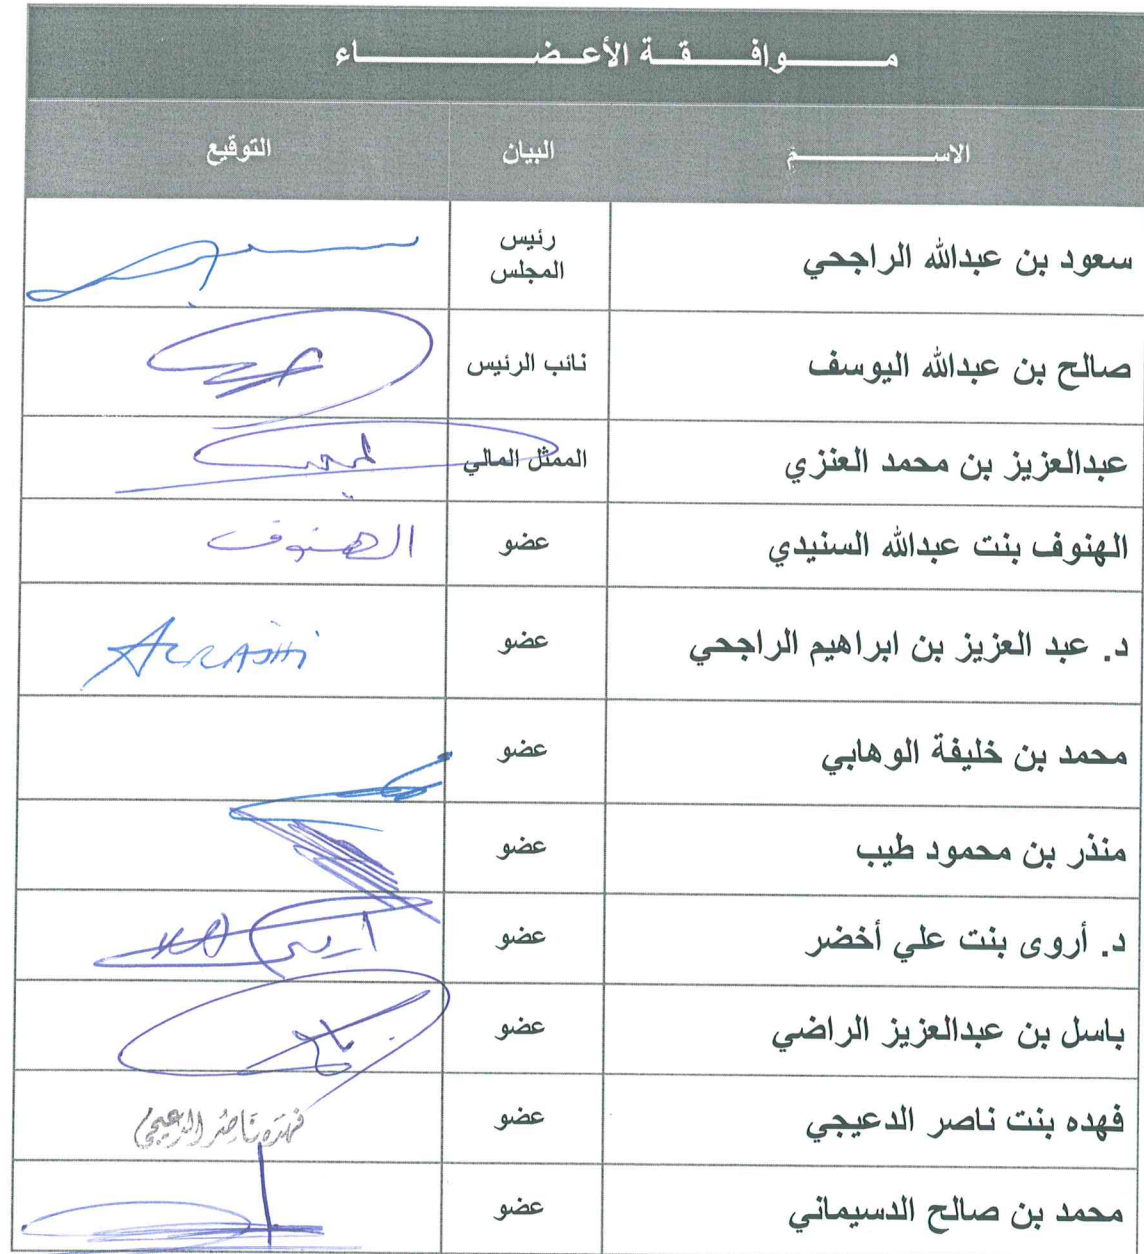 مـــــوافـــقـــة الأعـــضـــــــــاء
الاســــــــــم البيان التوقيع
سعود بن عبدالله الراجحي رئيس المجلس
صالح بن عبدالله اليوسف نائب الرئيس
عبدالعزيز بن محمد العنزي الممثل المالي
الهنوف بنت عبدالله السنيدي عضو الهنوف
د. عبد العزيز بن ابراهيم الراجحي عضو ALRAJHI
محمد بن خليفة الوهابي عضو
منذر بن محمود طيب عضو
د. أروى بنت علي أخضر عضو أروى
باسل بن عبدالعزيز الراضي عضو
فهده بنت ناصر الدعيجي عضو فهده ناصر الدعيجي
محمد بن صالح الدسيماني عضو